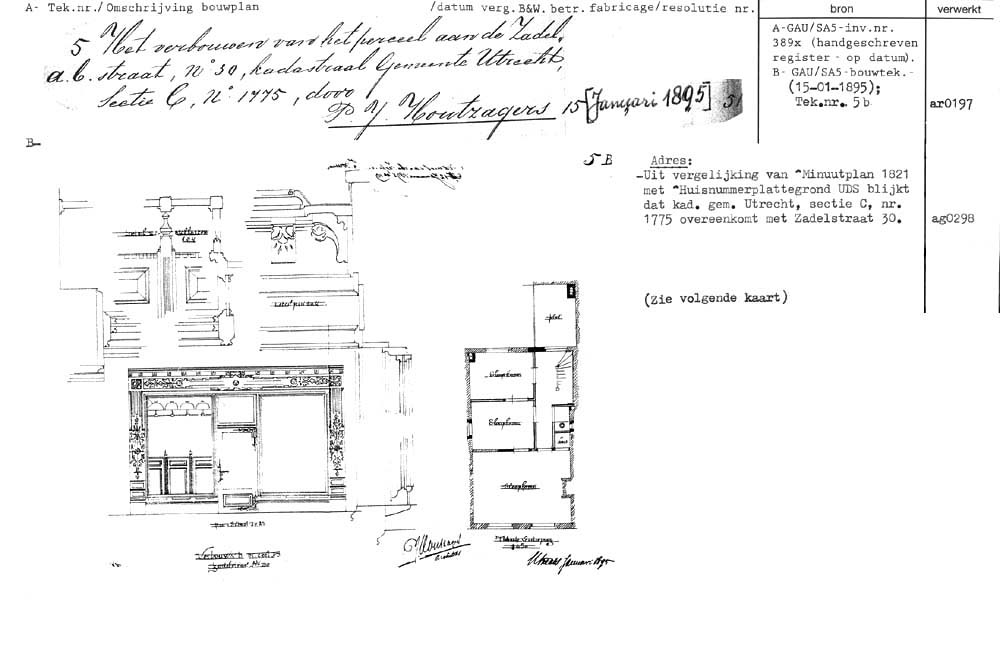 A- Tek.nr./Omschrijving bouwplan /datum verg.B&W. betr. fabricage/resolutie nr.
bron
verwerkt
5 Het verbouwen van het perceel aan de Zadel-
a.b. straat, No 30, kadastraal Gemeente Utrecht,
Sectie C, No 1775, door
P. J. Houtzagers 15 [Januari 1895] 51
A-GAU/SA5-inv.nr.
389x (handgeschreven
register - op datum).
B- GAU/SA5-bouwtek.-
(15-01-1895);
Tek.nr. 5b
ar0197
B-
5 B
Adres:
-Uit vergelijking van "Minuutplan 1821
met "Huisnummerplattegrond UDS blijkt
dat kad. gem. Utrecht, sectie C, nr.
1775 overeenkomt met Zadelstraat 30.
ag0298
(Zie volgende kaart)
plat
Slaapkamer
Slaapkamer
Slaapkamer
Utrecht Januari 1895